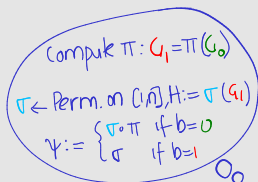 Compute π: G₁=π(G₀)
σ← Perm. on [1,n], H:= σ(G₁)
ψ:= { σ∘π if b=0
σ if b=1